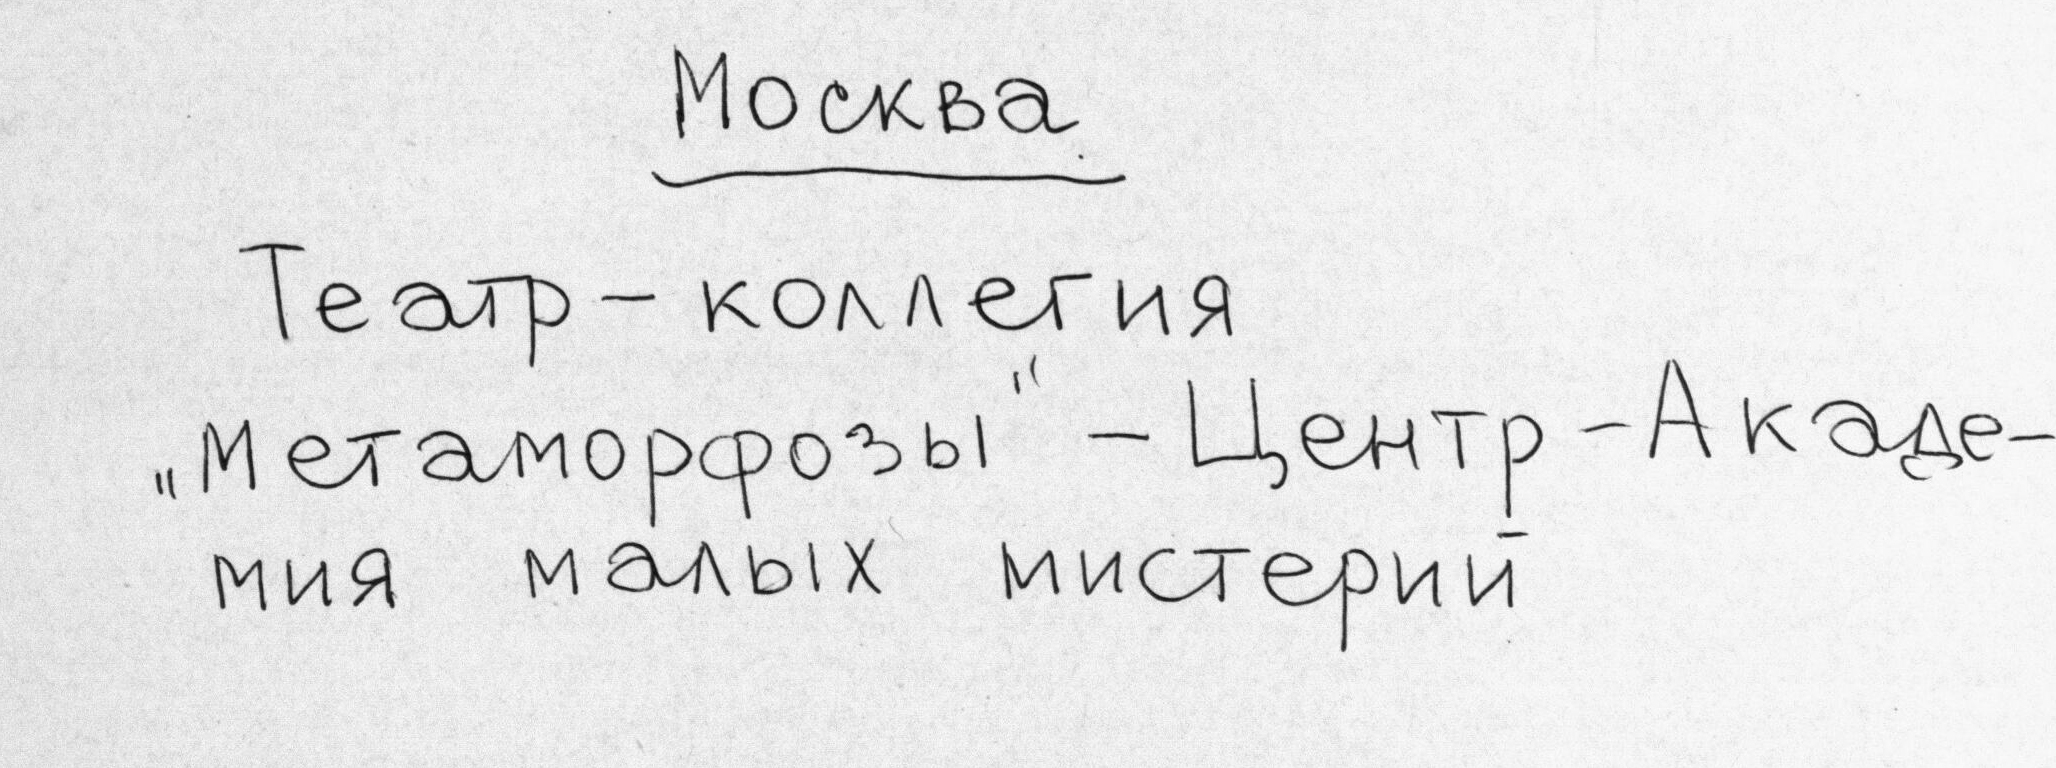 Москва
Театр-коллегия
„Метаморфозы“ - Центр-Акаде-
мия малых мистерий